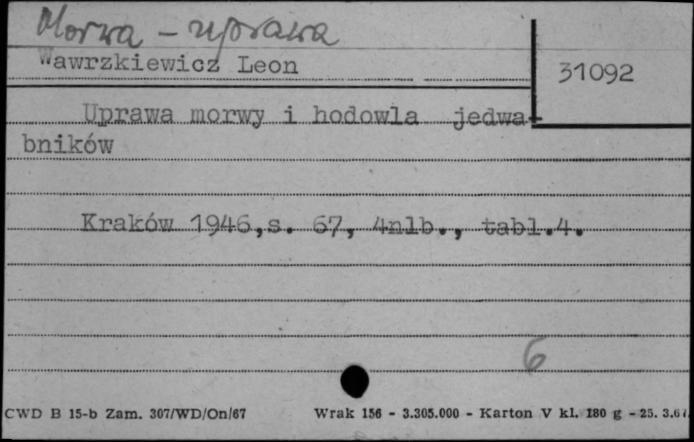 Morwa - uprawa
Wawrzkiewicz Leon
31092
Uprawa morwy i hodowla jedwa-
bników
Kraków 1946,s. 67, 4nlb., tabl.4.
6
CWD B 15-b Zam. 307/WD/On/67 Wrak 156 - 3.305.000 - Karton V kl. 180 g - 25. 3.67.